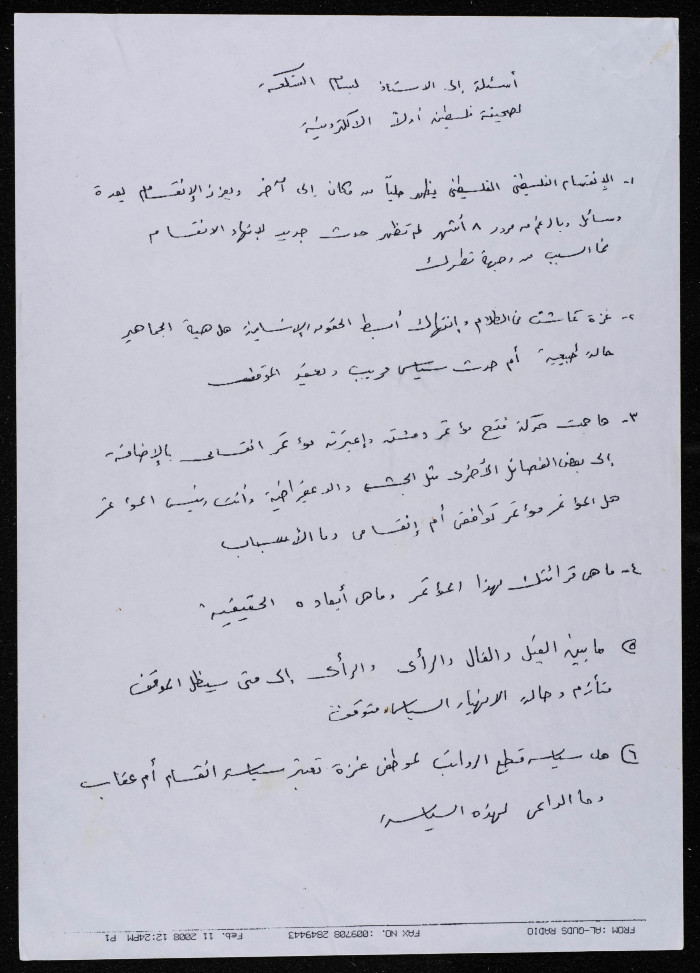 أسئلة إلى الاستاذ بسام الشكعة
لصحيفة فلسطين أولاً الالكترونية
١- الإنقسام الفلسطيني الفلسطيني يظهر جلياً من مكان إلى آخر ويعزز الإنقسام بعدة
وسائل وبالرغم من مرور ٨ أشهر لم تظهر حدث جديد لإنهاء الانقسام
فما السبب من وجهة نظرك
٢- غزة عاشت في الظلام وإنتهاك أبسط الحقوق الإنسانية هل هبة الجماهير
حالة طبيعية أم حدث سياسي مريب وتعقيد الموقف
٣- هاجمت حركة فتح مؤتمر دمشق وإعتبرته مؤتمر انقسامي بالإضافة
إلى بعض الفصائل الأخرى مثل الجبهة والديمقراطية وأنت رئيس المؤتمر
هل المؤتمر مؤتمر توافقي أم إنقسامي وما الأسباب
٤- ما هي قرائتك لهذا المؤتمر وماهي أبعاده الحقيقية؟
٥) ما بين القيل والقال والرأي والرأي إلى متى سيظل الموقف
متأزم وحالة الانهيار السياسي متوقف
٦) هل سياسة قطع الرواتب لموظفي غزة تعتبر سياسة انقسام أم عقاب
وما الداعي لهذه السياسة
FROM :AL-GUDS RADIO FAX NO. :009708 2849443 Feb. 11 2008 12:24PM P1